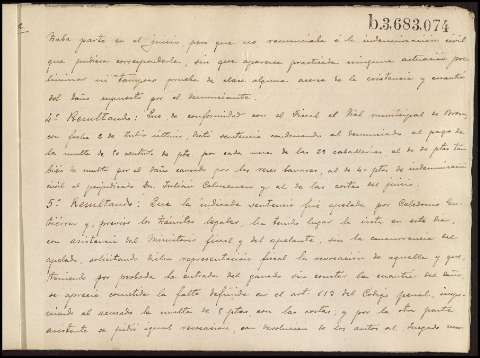 b.3.683.074
traba parte en el juicio, pero que no renunciaba á la indemnización civil
que pudiera corresponderle, sin que aparezca practicada ninguna actuación pre-
liminar ni tampoco prueba de clase alguna acerca de la existencia y cuantía
del daño expuesto por el denunciante.
4º Resultando: Que de conformidad con el Fiscal el Tbal municipal de
con fecha 2 de Julio último, dictó sentencia condenando al denunciado al pago de
la multa de 70 céntimos de pta por cada una de las 22 caballerías al de ptas tam-
bién de multa por el daño causado por las reses lanares, al de 40 ptas de indemnización
civil al perjudicado Dn. Julián y al de las costas del juicio.
5º Resultando: Que la indicada sentencia fué apelada por Celedonio Gu-
tiérrez y, previos los trámites legales, ha tenido lugar la vista en este día,
con asistencia del Ministerio fiscal y del apelante, sin la concurrencia del
apelado, solicitando dicha representación fiscal la revocación de aquella y que,
teniendo por probada la entrada del ganado sin constar la cuantía del daño
se aprecie cometida la falta definida en el art. 613 del Código penal, impo-
niendo al acusado la multa de 5 ptas con las costas; y por la otra parte
asistente se pidió igual revocación, con devolución de los autos al Juzgado mu-